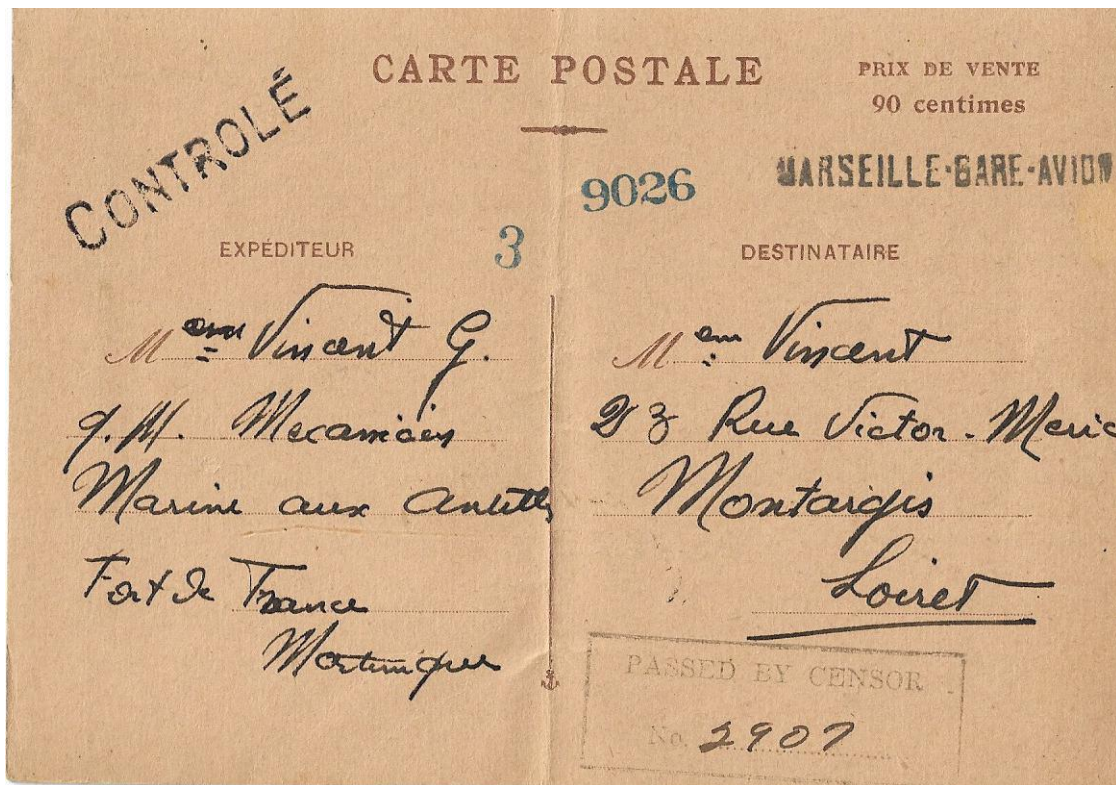 CARTE POSTALE
PRIX DE VENTE
90 centimes
CONTROLÉ
9026
MARSEILLE-GARE-AVION
3
EXPÉDITEUR
Vincent G.
q.M. Mecanicien
Marine aux Antilles
Fort de France
Martinique
DESTINATAIRE
Vincent
23 Rue Victor. Meric
Montargis
Loiret
PASSED BY CENSOR
No. 2907